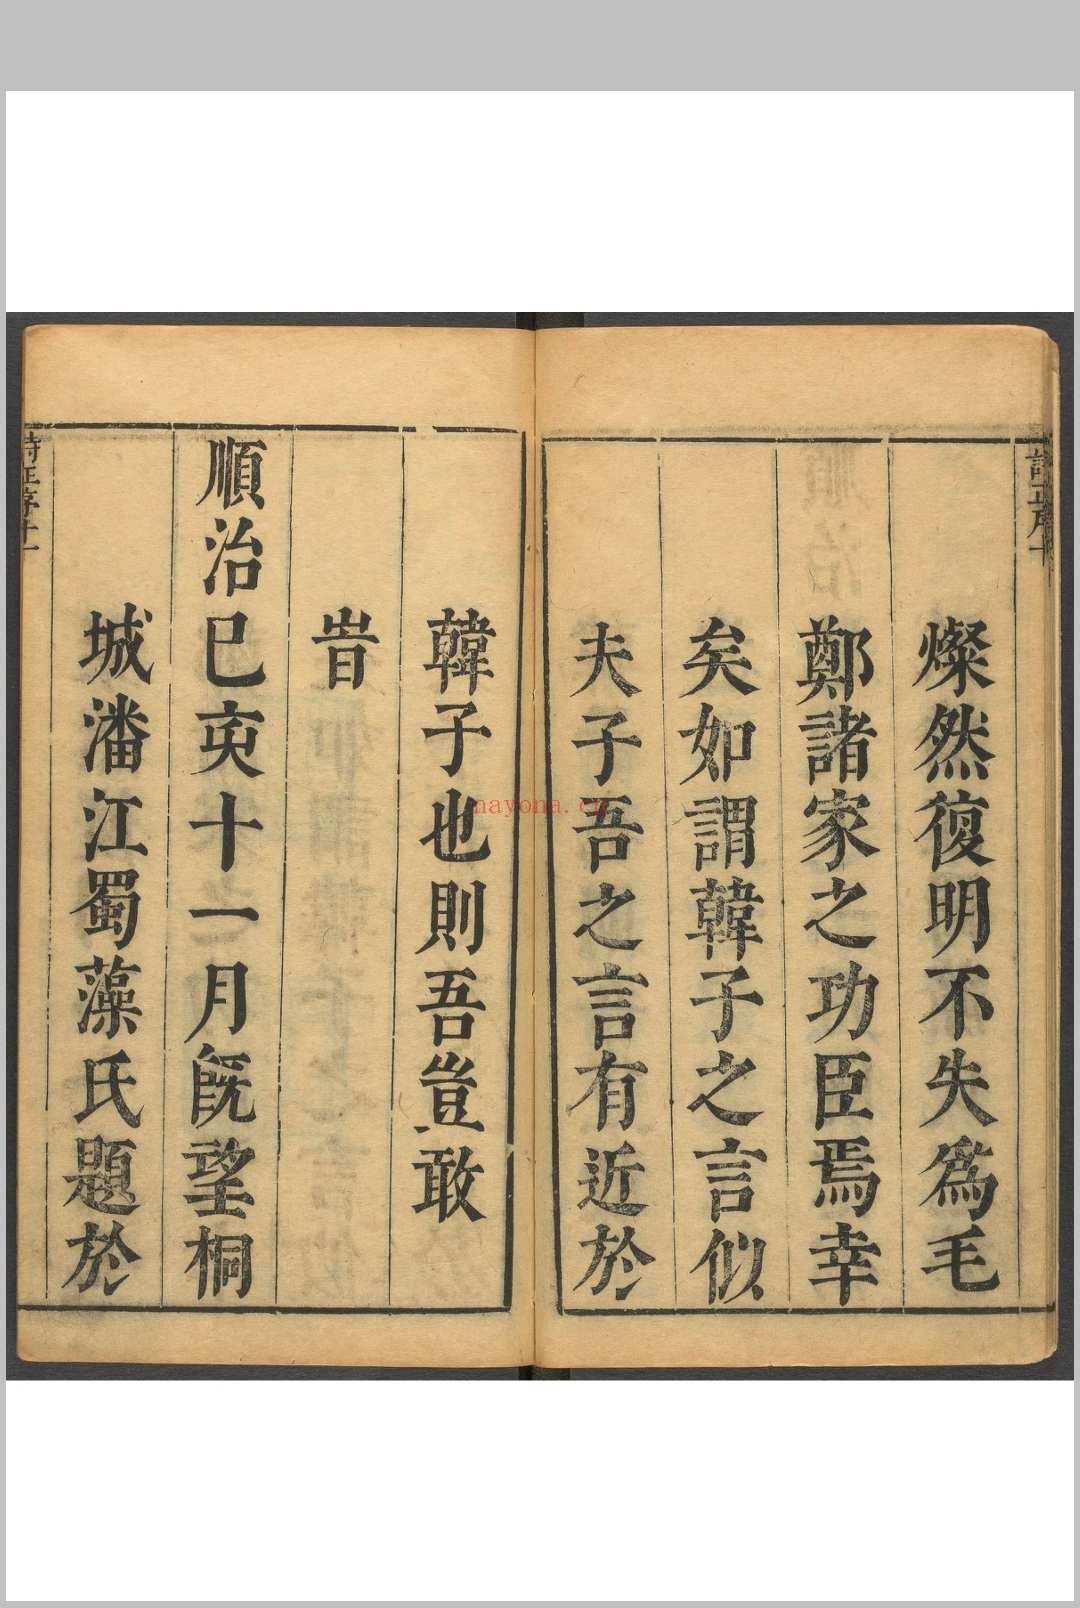 燦然復明不失爲毛
鄭諸家之功臣焉幸
矣如謂韓子之言似
夫子吾之言有近於
韓子也則吾豈敢
旹
順治已亥十一月既望桐
城潘江蜀藻氏題於
詩正序十
詩正序十一